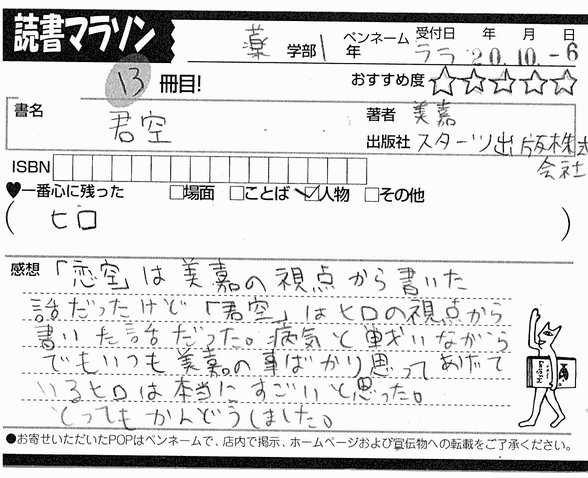 読書マラソン
薬 学部 1 年 ペンネーム ララ 受付日 年 月 日
20.10.-6
13 冊目! おすすめ度 ☆☆☆☆☆
書名 君空
著者 美嘉
出版社 スターツ出版株式
会社
ISBN
♥一番心に残った □場面 □ことば ☑人物 □その他
( ヒロ )
感想 「恋空」は美嘉の視点から書いた
話だったけど「君空」はヒロの視点から
書いた話だった。病気と戦いながら
でもいつも美嘉の事ばかり思ってあげて
いるヒロは本当にすごいと思った。
とってもかんどうしました。
●お寄せいただいたPOPはペンネームで、店内で掲示、ホームページおよび宣伝物への転載をご了承ください。